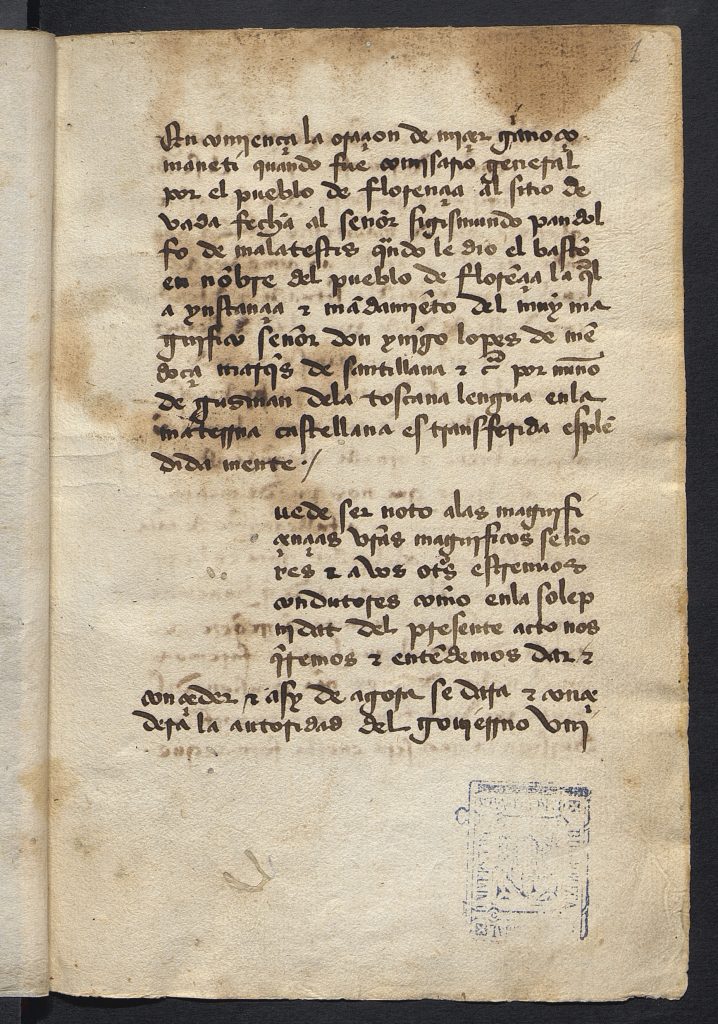 1
En comiença la oraçion de miçer gianoço
maneti quando fue comisario general
por el pueblo de florençia al sitio de
vada fecha al señor sigismundo pandol
fo de malatestis qñdo le dio el bastõ
en nõbre del pueblo de florẽçia la q̃l
a ynstançia & mãdamiẽto del muy ma
gnifico señor don ynigo lopes de mẽ
doça marq̃s de santillana & c̃ por nuño
de gusman dela toscana lengua enla
materna castellana es transferida esplẽ
dida mente ·/
uede ser noto alas magnifi
çençias vr̃as magnificos seño
res & a vos otr̃s estrenuos
condutores como enla solep
nidat del presente acto nos
q̃remos & entẽdemos dar &
conçeder & asy de agora se dara & conçe
dera la autoridad del gouierno vni